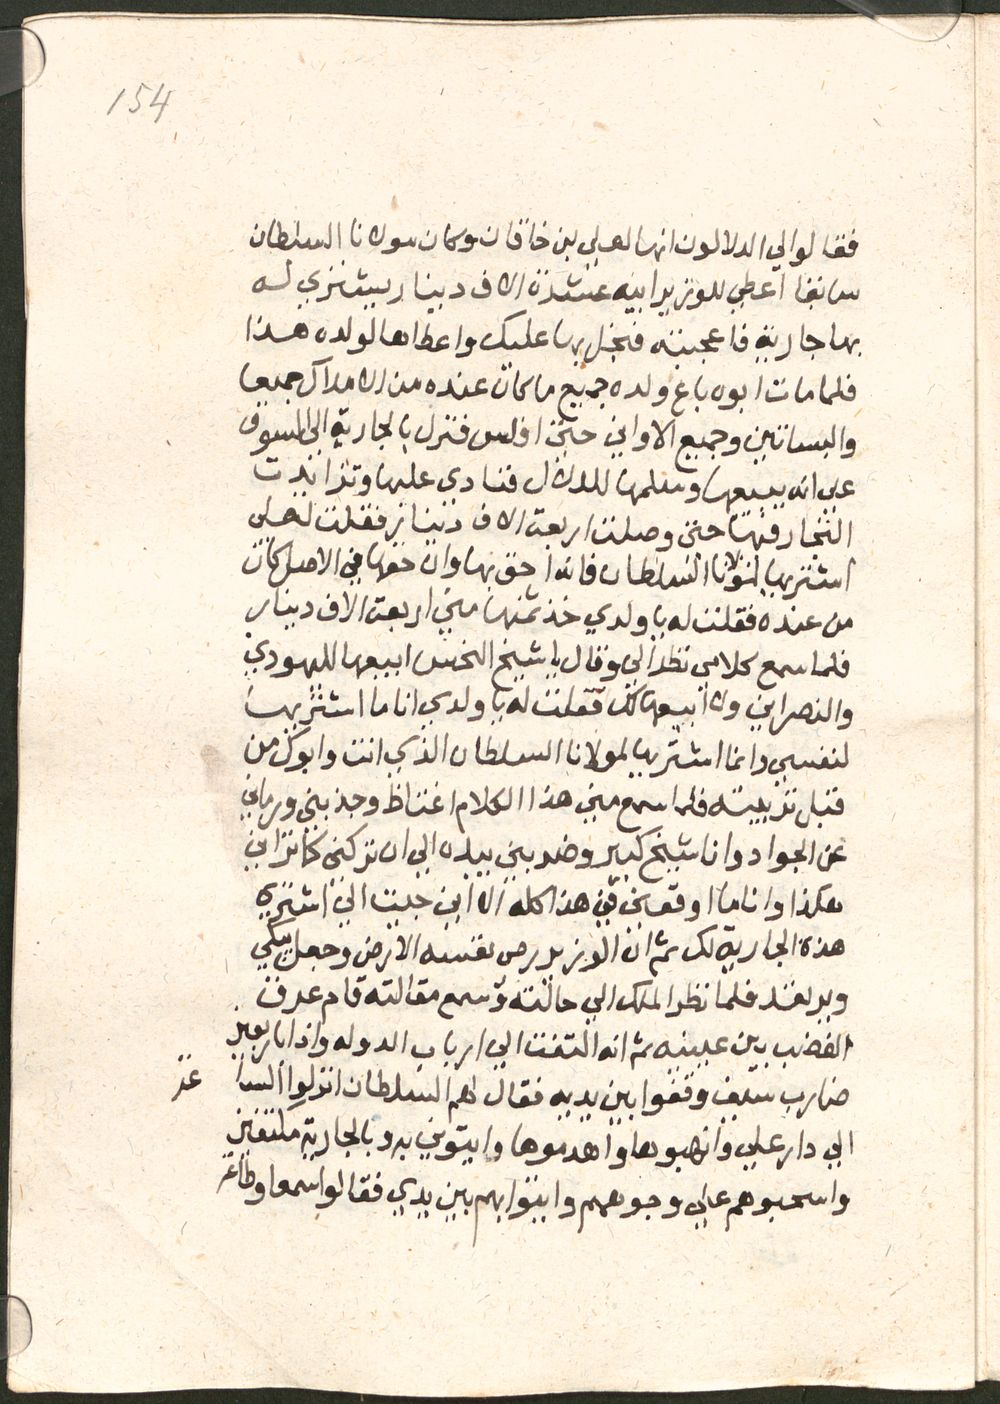 154
فقالوا لي الدلالون انها لعلي بن خاقان وكان مولانا السلطان
سابقا اعطي للوزير ابيه عشرة الاف دينار يشتري له
بها جارية فاعجبته فبخل بها عليك واعطاها لولده هذا
فلما مات ابوه باع ولده جميع ما كان عنده من الاملاك جميعا
والبساتين وجميع الاواني حتي افلس فنزل بالجارية الي السوق
علي انه يبيعها وسلمها للدلال فنادي عليها وتزايدت
التجار فيها حتي وصلت اربعة الاف دينار فقلت لعلي
اشتريها لمولانا السلطان فانه احق بها وان حقها في الاصل كان
من عنده فقلت له يا ولدي خذ ثمنها مني اربعة الاف دينار
فلما سمع كلامي نظر الي وقال يا شيخ النحس ابيعها لليهودي
والنصراني ولا ابيعها لك فقلت له يا ولدي انا ما اشتريها
لنفسي وانما اشتريها لمولانا السلطان الذي انت وابوك من
قبل تربيته فلما سمع مني هذا الكلام اغتاظ وجذبني ورماني
عن الجواد وانا شيخ كبير وضربني بيده الي ان تركني كما تراني
هكذا وانا ما اوقعني في هذا كله الا اني جيت الي اشتري
هذه الجارية لك ثم ان الوزير رمى نفسه الارض وجعل يبكي
ويرتعد فلما نظر الملك الي حالته وسمع مقالته قام عرق
الغضب بين عينيه ثم انه التفت الي ارباب الدوله واذا باربعين
ضارب سيف وقفوا بين يديه فقال لهم السلطان انزلوا الساعة
الي دار علي وانهبوها واهدموها وايتوني به وبالجارية مكتفين
واسحبوهم علي وجوههم وايتوا بهم بين يدي فقالوا سمعا وطاعه